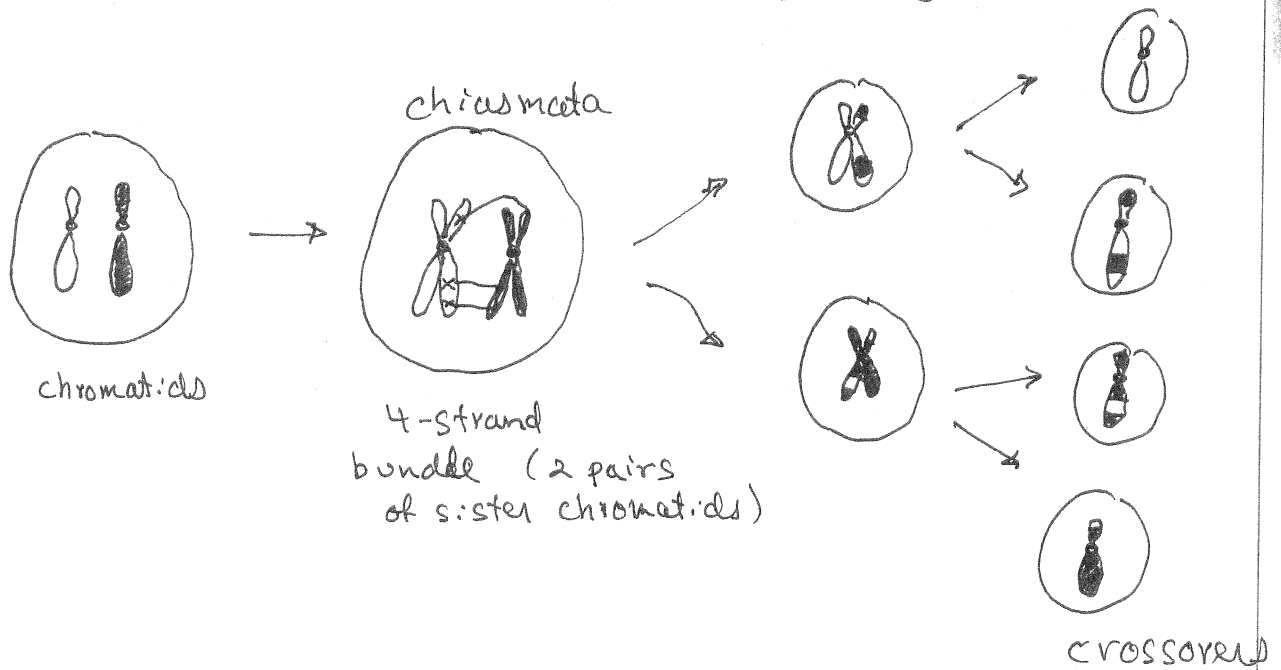 chiasmata
chromatids
4-strand
bundle (2 pairs
of sister chromatids)
crossovers